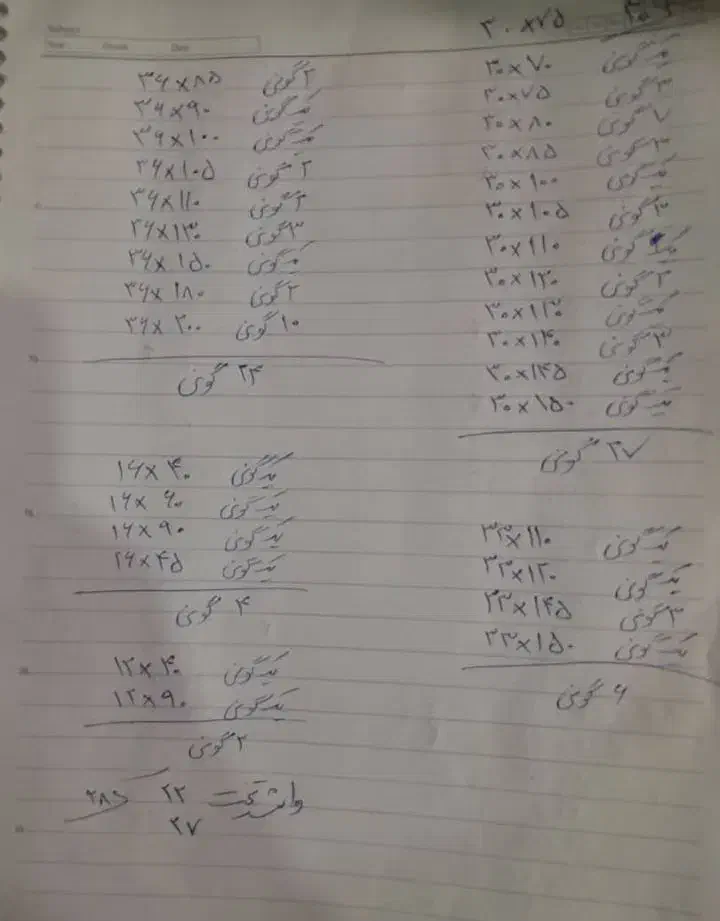 ۳۰×۷۵
یک گونی ۳۰×۷۰
۳ گونی ۳۰×۷۵
۷ گونی ۳۰×۸۰
۳ گونی ۳۰×۸۵
یک گونی ۳۰×۱۰۰
۳ گونی ۳۰×۱۰۵
یک گونی ۳۰×۱۱۰
۲ گونی ۳۰×۱۲۰
یک گونی
۳ گونی ۳۰×۱۴۰
یک گونی ۳۰×۱۴۵
یک گونی ۳۰×۱۵۰
۲۷ گونی
یک گونی ۳۳×۱۱۰
یک گونی ۳۳×۱۲۰
۳ گونی ۳۳×۱۴۵
یک گونی ۳۳×۱۵۰
۶ گونی
۲ گونی ۳۶×۸۵
یک گونی ۳۶×۹۰
یک گونی ۳۶×۱۰۰
۲ گونی ۳۶×۱۰۵
۲ گونی ۳۶×۱۱۰
۳ گونی ۳۶×۱۳۰
یک گونی ۳۶×۱۵۰
۲ گونی ۳۶×۱۸۰
۱۰ گونی ۳۶×۲۰۰
۲۴ گونی
یک گونی ۱۶×۴۰
یک گونی ۱۶×۶۰
یک گونی ۱۶×۹۰
یک گونی ۱۶×۴۵
۴ گونی
یک گونی ۱۲×۴۰
یک گونی ۱۲×۹۰
۲ گونی
واشر تخت ۲۲
۲۷